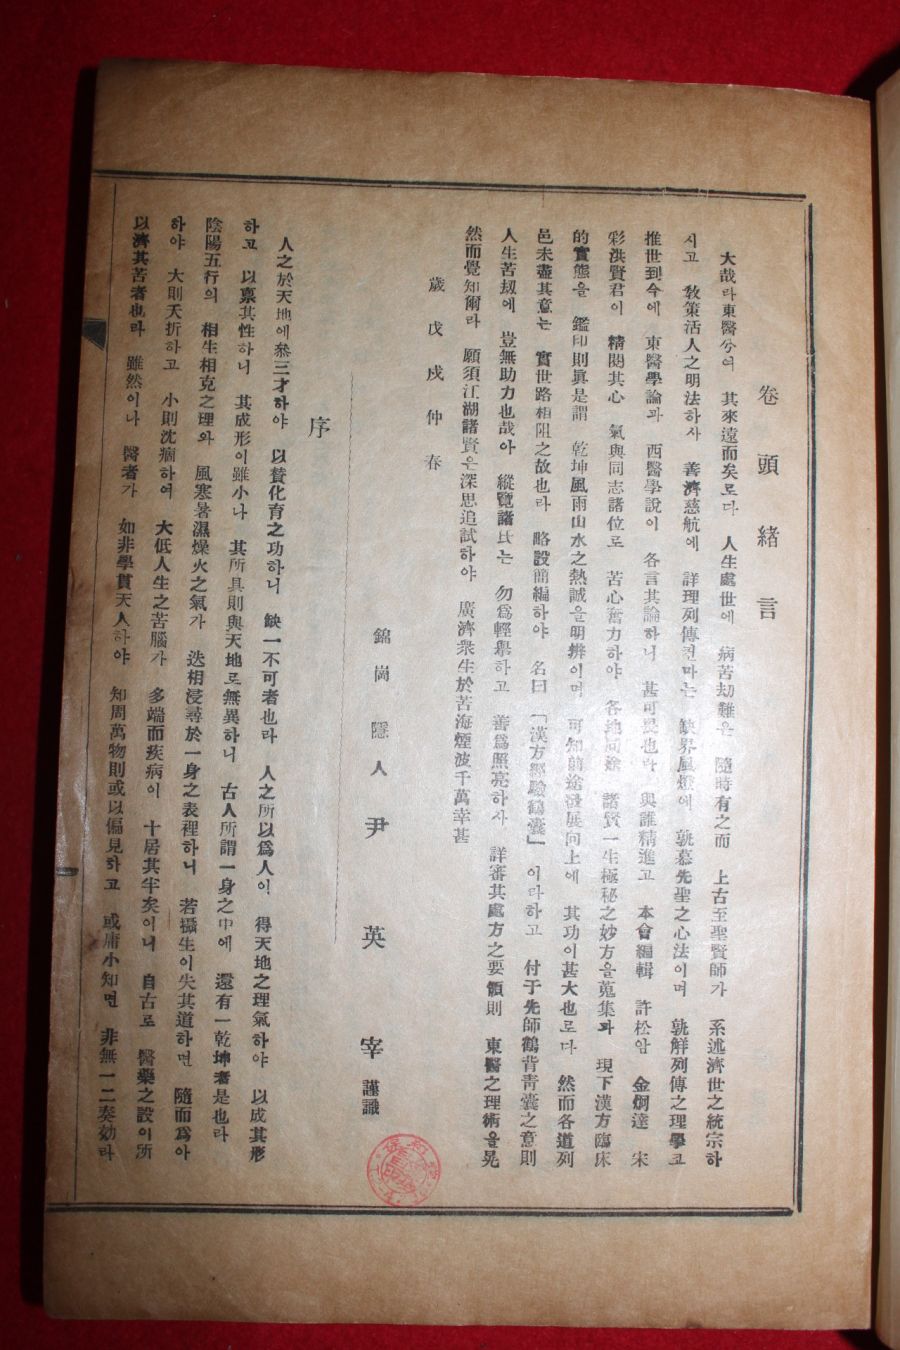 卷頭緖言
大哉라東醫兮여 其來遠而矣로다 人生處世에 病苦劫難은 隨時有之而 上古至聖賢師가 系述濟世之統宗하
시고 敎策活人之明法하사 善濟慈航에 詳理列傳컨마는 缺界風燈에 孰慕先聖之心法이며 孰解列傳之理學고
推世到今에 東醫學論과 西醫學說이 各言其論하니 甚可畏也라 與誰精進고 本會編輯 許松암 金炯達 宋
彩洪賢君이 精閱其心 氣與同志諸位로 苦心奮力하야 各地同途 諸賢一生極秘之妙方을蒐集과 現下漢方臨床
的實態을 鑑印則眞是謂 乾坤風雨山水之熱誠을明辨이며 可知前途漫展向上에 其功이甚大也로다 然而各道列
邑未盡其意는 實世路相阻之故也라 略設簡編하야 名曰「漢方經驗鶴囊」이라하고 付于先師鶴背靑囊之意則
人生苦劫에 豈無助力也哉아 縱覽諸氏는 勿爲輕擧하고 善爲照亮하사 詳審其處方之要領則 東醫之理術을晃
然而覺知爾라 願須江湖諸賢은深思追試하야 廣濟衆生於苦海煙波千萬幸甚
歲戊戌仲春
錦崗隱人 尹英宰 謹識
序
人之於天地에參三才하야 以贊化育之功하니 缺一不可者也라 人之所以爲人이 得天地之理氣하야 以成其形
하고 以稟其性하니 其成形이雖小나 其所具則與天地로無異하니 古人所謂一身之中에 還有一乾坤者是也라
陰陽五行의 相生相克之理와 風寒暑濕燥火之氣가 迭相浸尋於一身之表裡하니 若攝生이失其道하면 隨而爲아
하야 大則夭折하고 小則沈痼하여 大低人生之苦腦가 多端而疾病이 十居其半矣이니 自古로 醫藥之設이所
以濟其苦者也라 雖然이나 醫者가 如非學貫天人하야 知周萬物則或以偏見하고 或庸小知면 非無一二奏効라